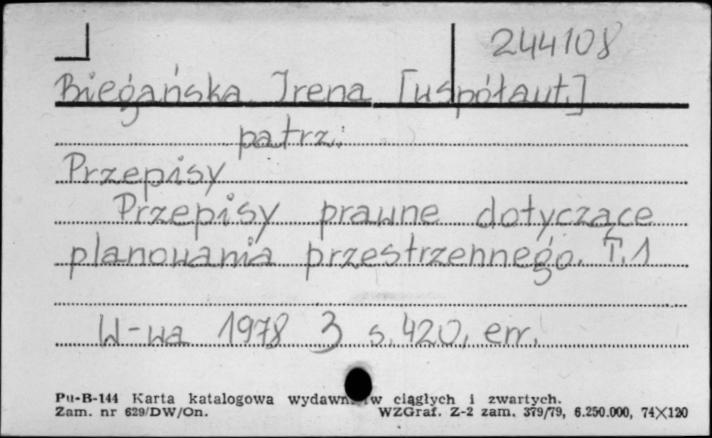 244108
Biegańska Irena [współaut.]
patrz:
Przepisy
Przepisy prawne dotyczące
planowania przestrzennego. T.1
W-wa 1978 3 s. 420, err.
Pu-B-144 Karta katalogowa wydawn w ciągłych i zwartych.
Zam. nr 629/DW/On. WZGraf. Z-2 zam. 379/79, 6.250.000, 74×120